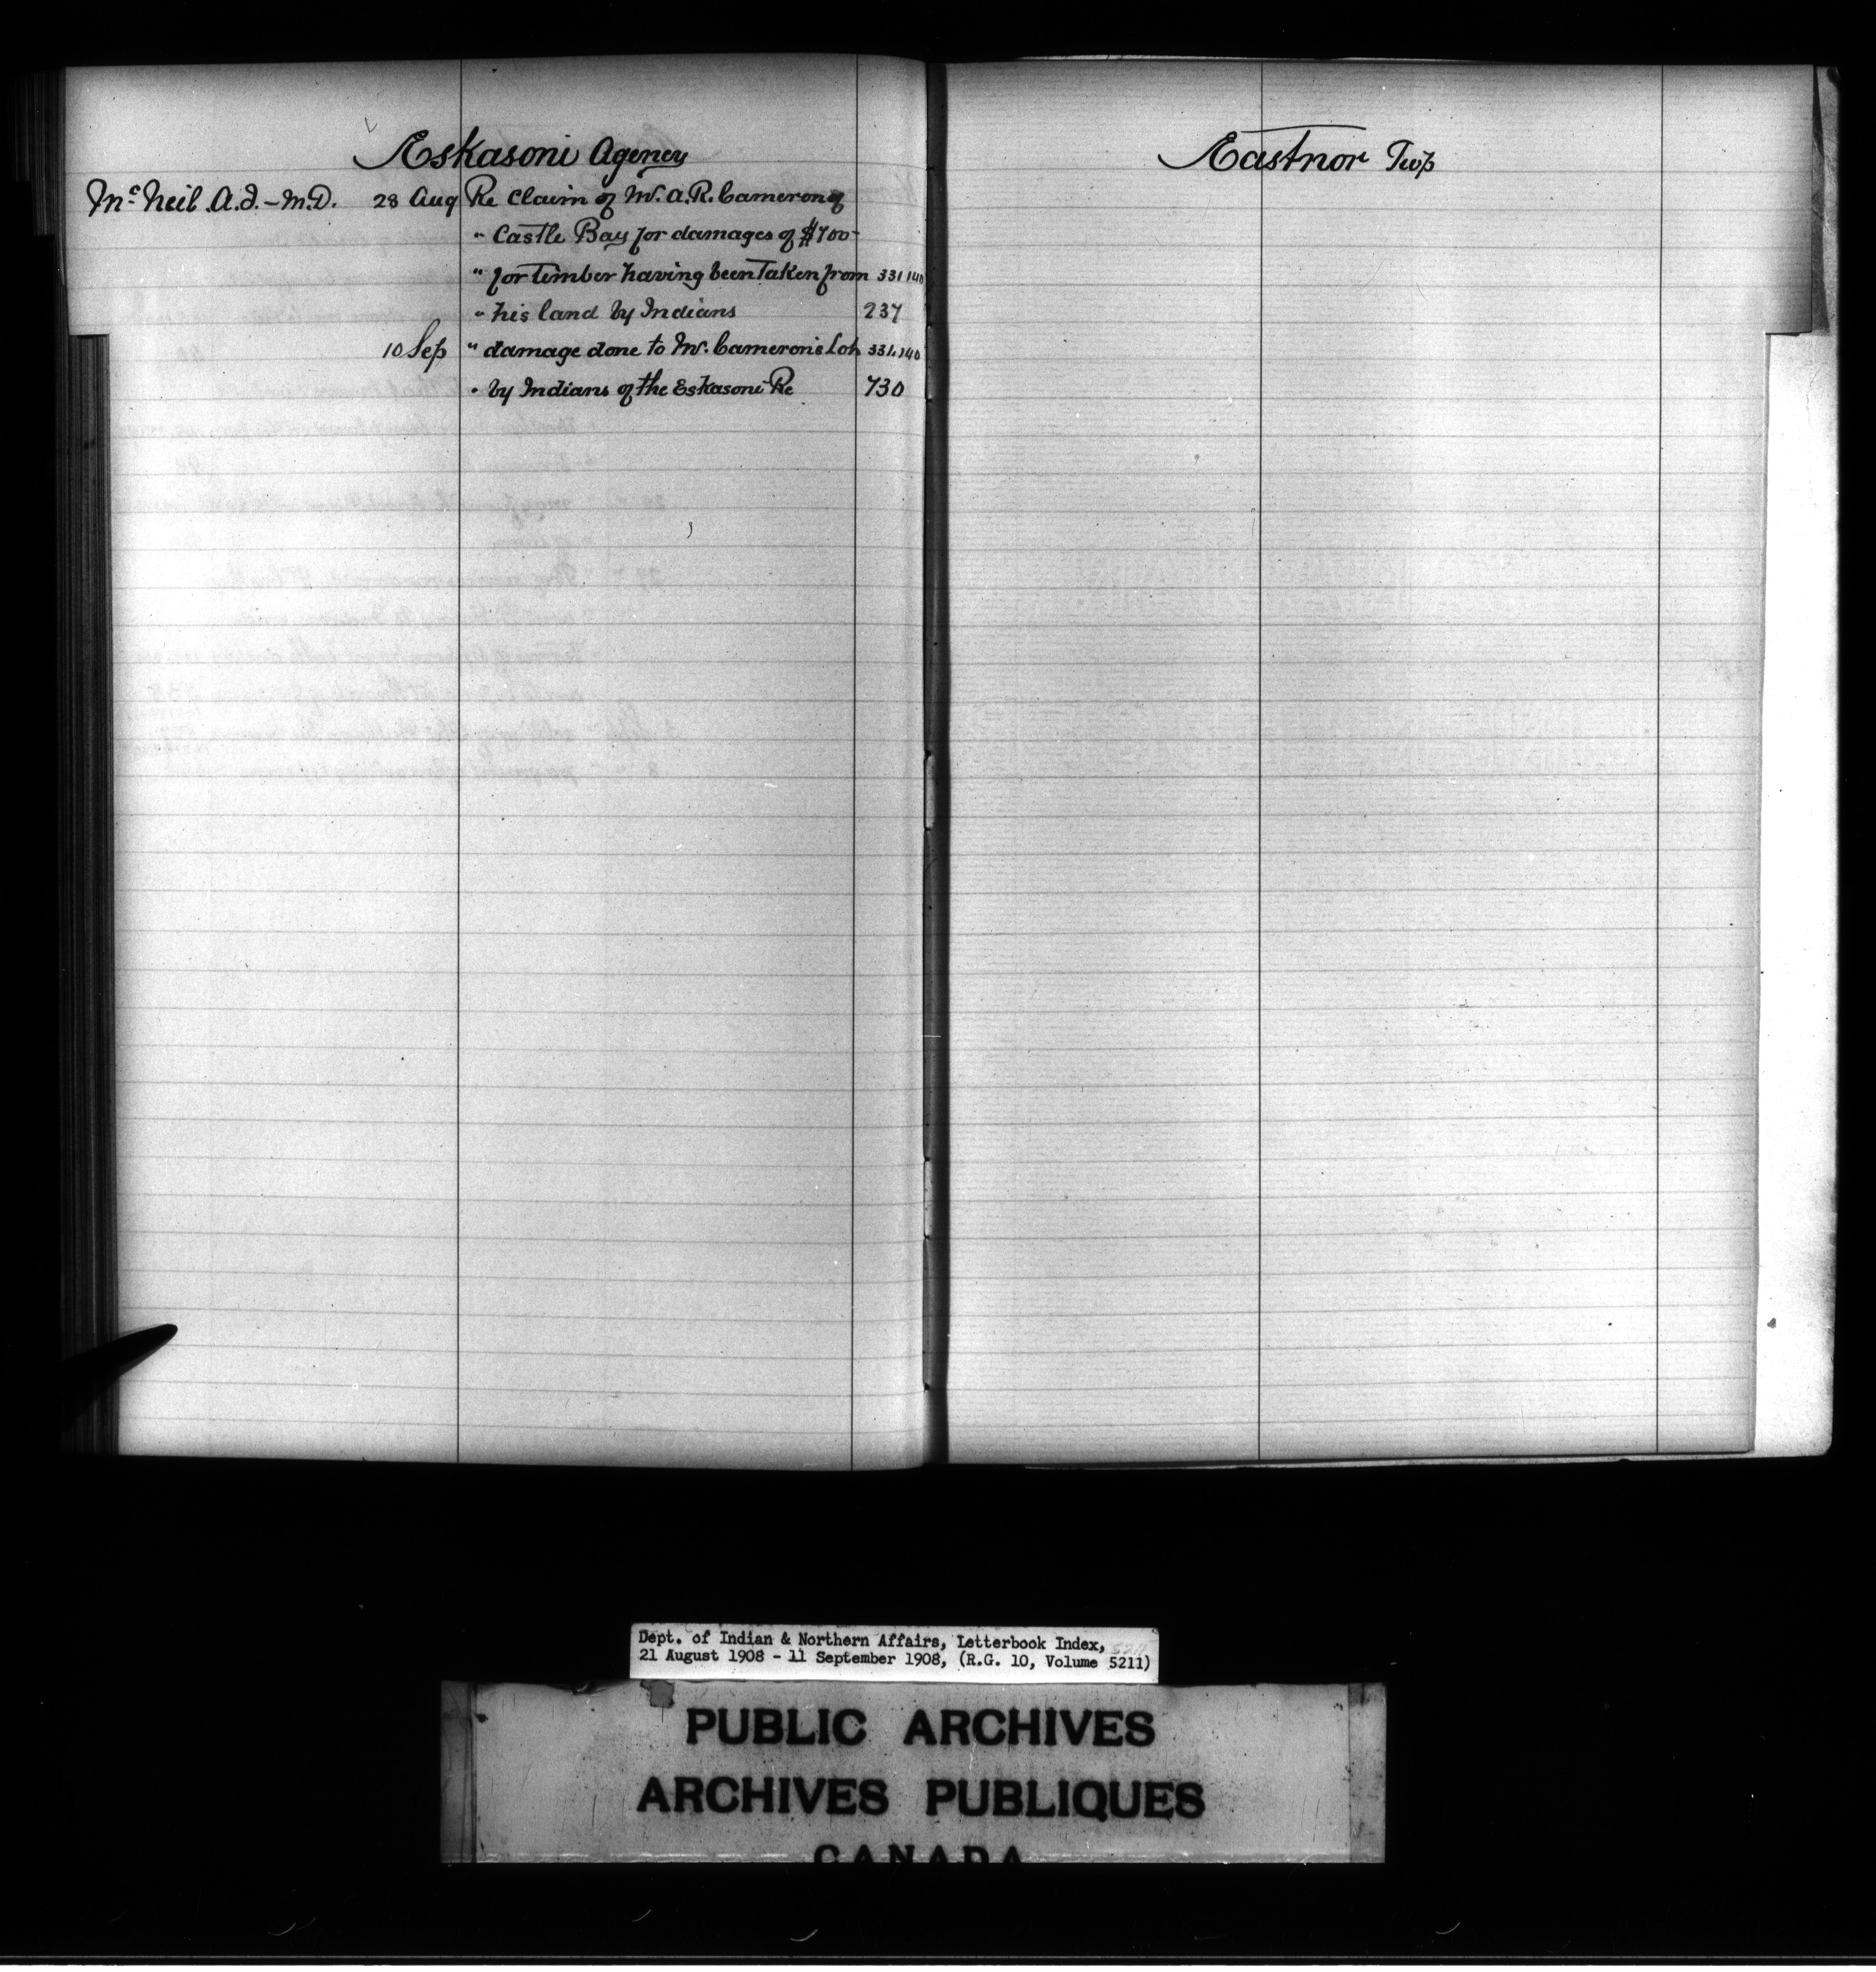 Eskasoni Agency
McNeil A.J. - M.D. 28 Aug Re Claim of Mr. A.R. Cameron of
" Castle Bay for damages of $700-
" for timber having been Taken from 331140
" his land by Indians 237
10 Sep " damage done to Mr. Cameron's Lot 331,140
" by Indians of the Eskasoni Re 730
Eastnor Twp
Dept. of Indian & Northern Affairs, Letterbook Index,
21 August 1908 - 11 September 1908, (R.G. 10, Volume 5211)
PUBLIC ARCHIVES
ARCHIVES PUBLIQUES
CANADA